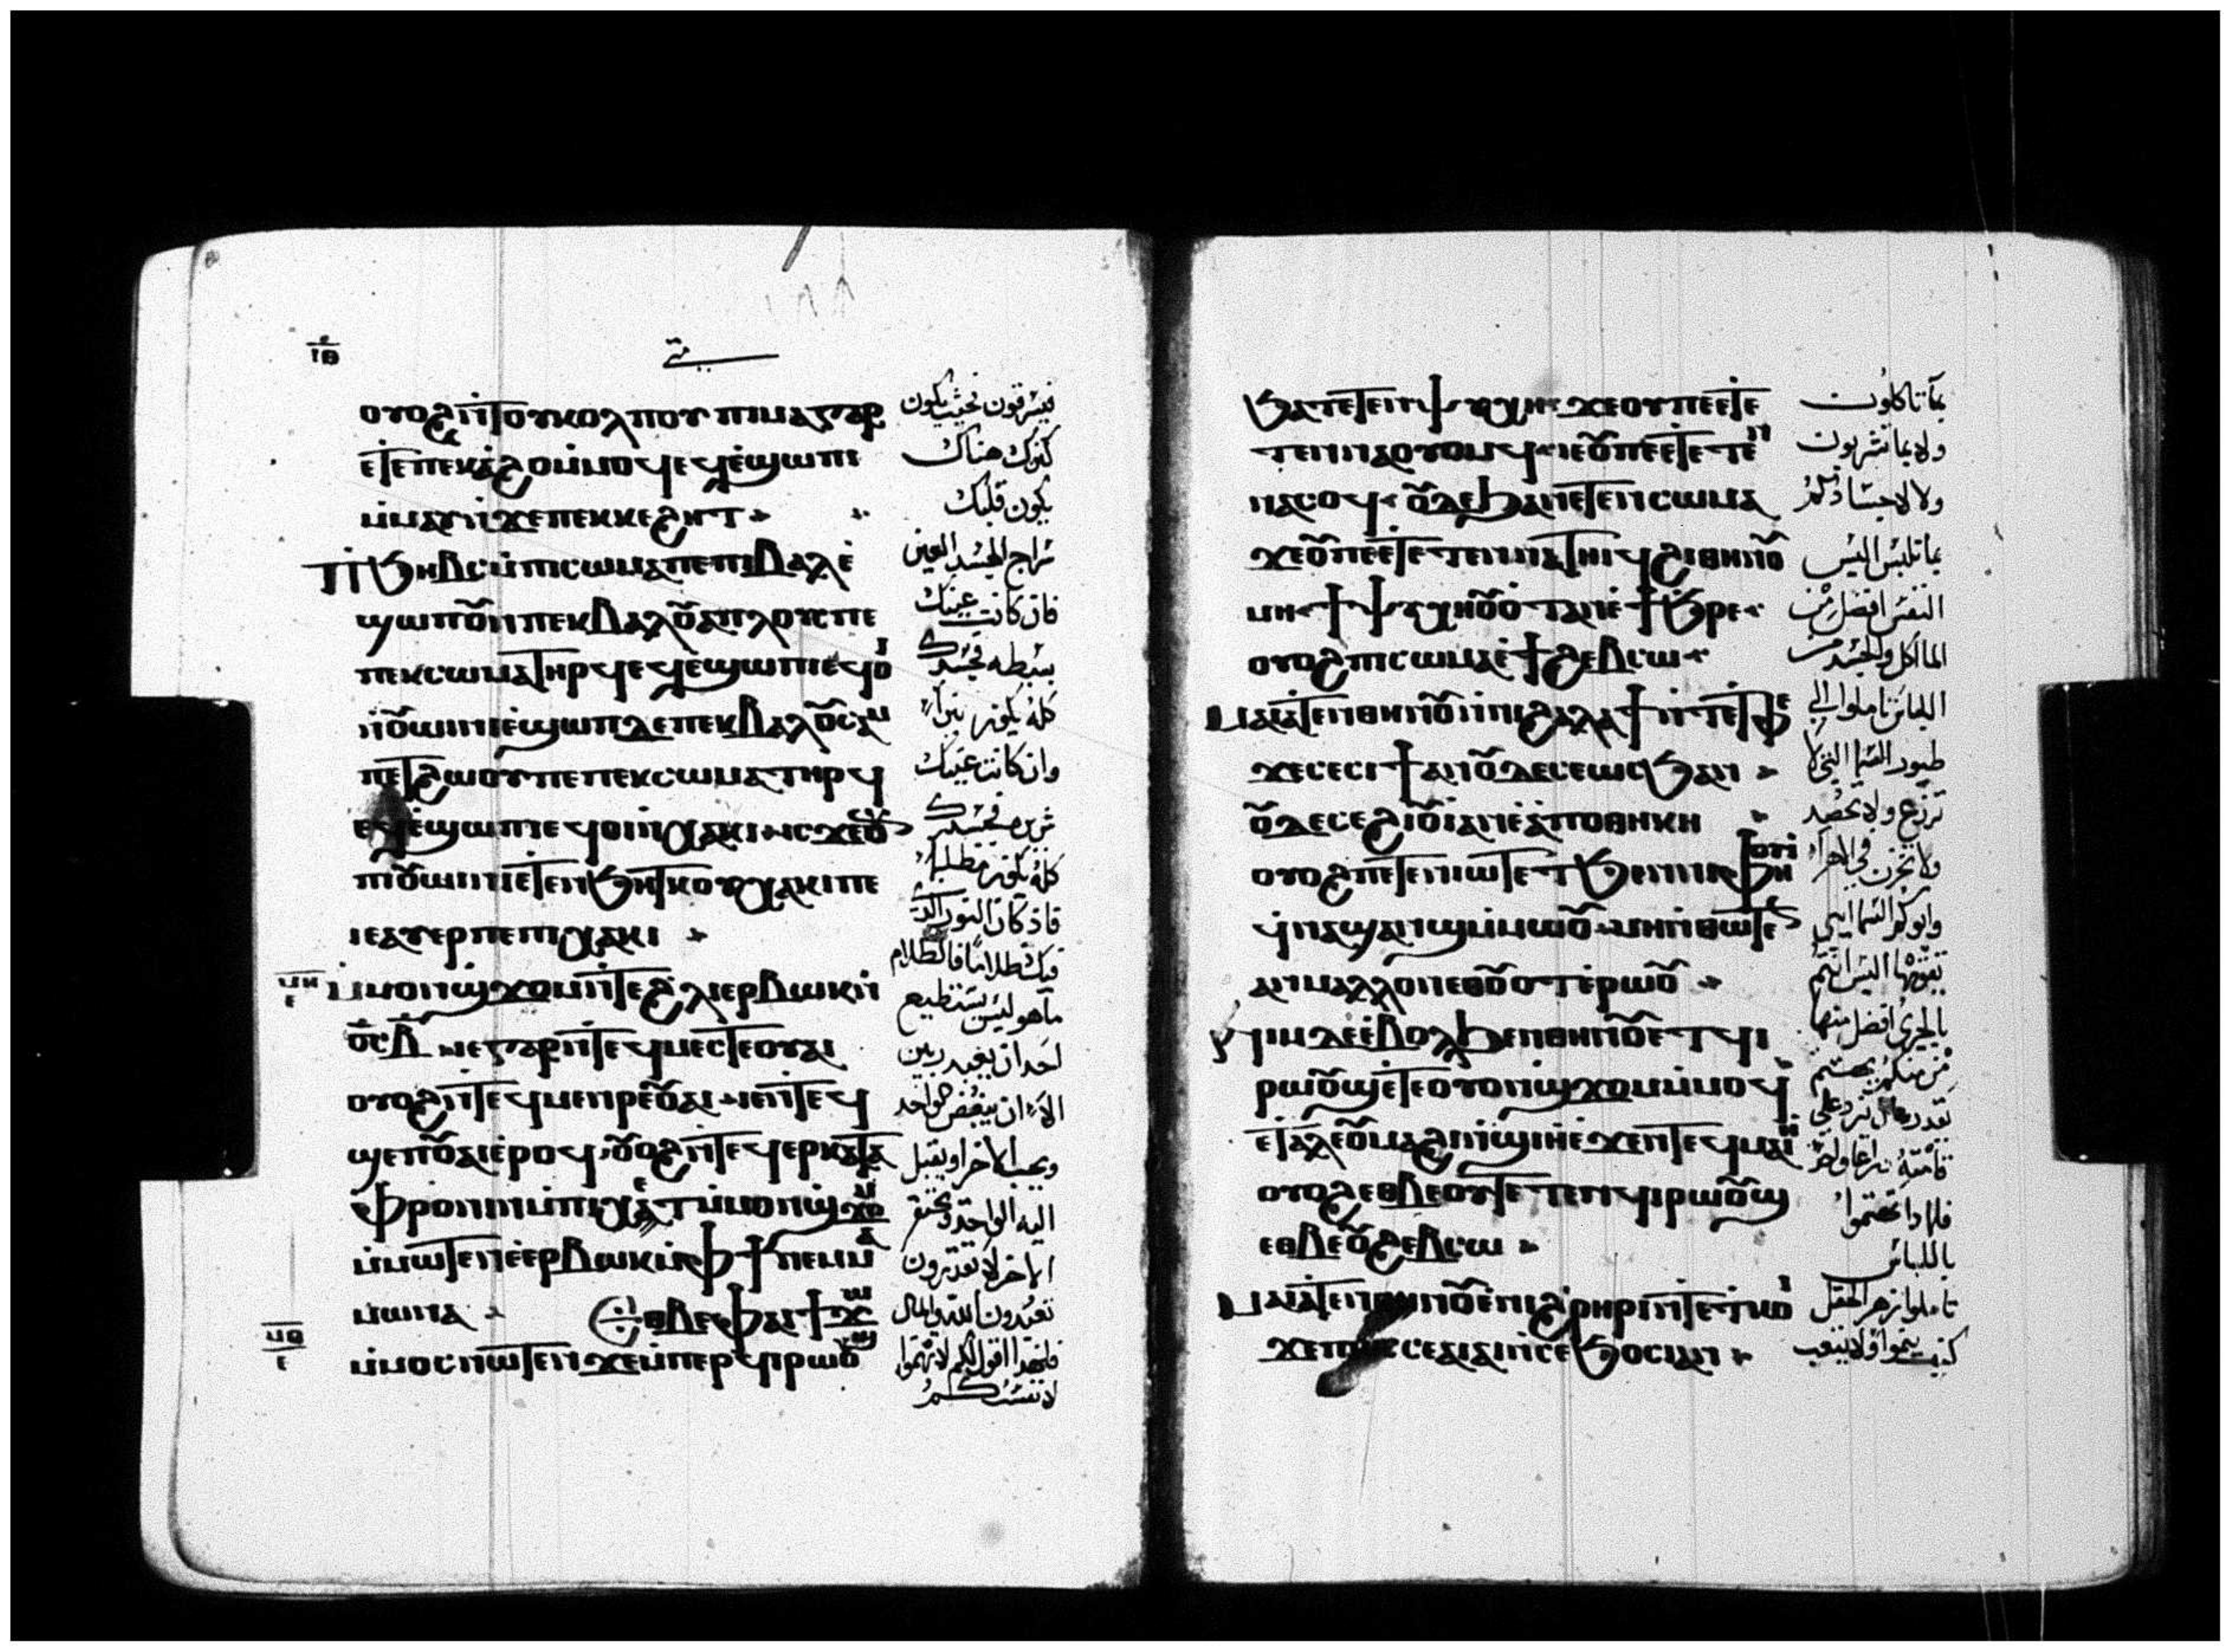 ⲓⲑ
متى
ⲟⲩⲟϩ ⲛ̀ⲧⲟⲩⲕⲟⲗⲡⲟⲩ ⲡⲓⲙⲁ ⲅⲁⲣ
ⲉⲧⲉⲡⲉⲕⲁ̀ϩⲟ ⲙ̀ⲙⲟϥ ⲉϥⲉ̀ϣⲱⲡⲓ
ⲙ̀ⲙⲁⲩ ⲛ̀ϫⲉⲡⲉⲕⲕⲉϩⲏⲧ
ⲡⲓϧⲏⲃⲥ ⲙ̀ⲡⲓⲥⲱⲙⲁ ⲡⲉ ⲡⲓⲃⲁⲗ ⲉ̀
ϣⲱⲡ ⲟⲩⲛ ⲡⲉⲕⲃⲁⲗ ⲟⲩⲁⲡⲗⲟⲩⲥ ⲡⲉ
ⲡⲉⲕⲥⲱⲙⲁ ⲧⲏⲣϥ ⲉϥⲉ̀ϣⲱⲡⲓ ⲉϥⲟⲓ
ⲛ̀ⲟⲩⲱⲓⲛⲓ ⲉ̀ϣⲱⲡ ⲇⲉ ⲡⲉⲕⲃⲁⲗ ⲟⲩⲥⲁⲙ
ⲡⲉⲧϩⲱⲟⲩ ⲡⲉ ⲡⲉⲕⲥⲱⲙⲁ ⲧⲏⲣϥ
ⲉϥⲉ̀ϣⲱⲡⲓ ⲉϥⲟⲓ ⲛ̀ⲭⲁⲕⲓ ⲓⲥϫⲉ ⲟⲩⲛ
ⲡⲓⲟⲩⲱⲓⲛⲓ ⲉⲧⲉⲛϧⲏⲧⲕ ⲟⲩⲭⲁⲕⲓ ⲡⲉ
ⲓⲉ ⲁⲩⲏⲣ ⲡⲉ ⲡⲓⲭⲁⲕⲓ
ⲙ̀ⲙⲟⲛ ϣϫⲟⲙ ⲛ̀ⲧⲉϩⲗⲓ ⲉⲣⲃⲱⲕ ⲛ̀
ⲟⲥ ⲃ̅ ⲓⲉ ⲅⲁⲣ ⲛ̀ⲧⲉϥⲙⲉⲥⲧⲉ ⲟⲩⲁⲓ
ⲟⲩⲟϩ ⲛ̀ⲧⲉϥⲙⲉⲛⲣⲉ ⲟⲩⲁⲓ ⲓⲉ ⲛ̀ⲧⲉϥ
ϣⲉⲡ ⲟⲩⲁⲓ ⲉ̀ⲣⲟϥ ⲟⲩⲟϩ ⲛ̀ⲧⲉϥⲉⲣⲕⲁⲧⲁ
ⲫⲣⲟⲛⲓⲛ ⲙ̀ⲡⲓⲭⲉⲧ ⲙ̀ⲙⲟⲛ ϣϫⲟⲙ
ⲙ̀ⲙⲱⲧⲉⲛ ⲉ̀ⲉⲣⲃⲱⲕ ⲙ̀ⲫϯ ⲛⲉⲙ ⲙⲁ
ⲙⲱⲛⲁ ⲉⲑⲃⲉⲫⲁⲓ ϯϫⲱ
ⲙ̀ⲙⲟⲥ ⲛⲱⲧⲉⲛ ϫⲉ ⲙ̀ⲡⲉⲣϥⲓⲣⲱⲟⲩϣ
فيسرقون فحيث يكون
كنزك هناك
يكون قلبك
سراج الجسد العين
فان كانت عينك
بسيطه فجسدك
كله يكون نيرا
وان كانت عينك
شريره فجسدك
كله يكون مظلما
فاذ كان النور الذى
فيك ظلاما فالظلام
ما هو ليس يستطيع
احد ان يعبد ربين
الا ان يبغض الواحد
ويحب الاخر او يقبل
الاخر لا تقدرون
تعبدون الله والمال
فلهذا اقول لكم لا تهتموا
لانفسكم
ϧⲁ ⲧⲉⲧⲉⲛⲯⲩⲭⲏ ϫⲉ ⲟⲩ ⲡⲉ ⲉⲧⲉ
ⲧⲉⲛⲛⲁⲟⲩⲟⲙϥ ⲓⲉ ⲟⲩ ⲡⲉ ⲉⲧⲉⲧⲉⲛ
ⲛⲁⲥⲟϥ ⲟⲩⲇⲉ ϧⲁ ⲡⲉⲧⲉⲛⲥⲱⲙⲁ
ϫⲉ ⲟⲩ ⲡⲉ ⲉⲧⲉⲧⲉⲛⲛⲁⲧⲏⲓϥ ϩⲓⲑⲏⲛⲟⲩ
ⲙⲏ ϯⲯⲩⲭⲏ ⲟⲩⲟⲧ ⲁⲛ ⲉ̀ϯϧⲣⲉ
ⲟⲩⲟϩ ⲡⲓⲥⲱⲙⲁ ⲉ̀ϯϩⲉⲃⲥⲱ
ⲙⲁⲓⲁⲧⲉⲛⲑⲏⲛⲟⲩ ⲛ̀ⲛⲓϩⲁⲗⲁϯ ⲛ̀ⲧⲉⲧⲫⲉ
ϫⲉ ⲥⲉⲥⲓϯ ⲁⲛ ⲟⲩⲇⲉ ⲥⲉⲱⲥϧ ⲁⲛ
ⲟⲩⲇⲉ ⲥⲉϩⲓⲟⲩⲓ ⲁⲛ ⲉ̀ⲁⲡⲟⲑⲏⲕⲏ
ⲟⲩⲟϩ ⲡⲉⲧⲉⲛⲓⲱⲧ ⲉⲧϧⲉⲛ ⲛⲓⲫⲏⲟⲩⲓ
ϥ̀ϣⲁⲛϣ ⲙ̀ⲙⲱⲟⲩ ⲙⲏ ⲛ̀ⲑⲱⲧⲉⲛ
ⲁⲛ ⲙⲁⲗⲗⲟⲛ ⲉⲑⲟⲩⲟⲧ ⲉ̀ⲣⲱⲟⲩ
ⲛⲓⲙ ⲇⲉ ⲉ̀ⲃⲟⲗ ϧⲉⲛⲑⲏⲛⲟⲩ ⲉⲧϥⲓ
ⲣⲱⲟⲩϣ ⲉⲧⲉ ⲟⲩⲟⲛ ϣϫⲟⲙ ⲙ̀ⲙⲟϥ
ⲉ̀ⲧⲁⲗⲉ ⲟⲩⲙⲁϩⲓ ⲛ̀ϣⲓⲏ ⲉ̀ϫⲉⲛ ⲧⲉϥⲙⲁⲓⲏ
ⲟⲩⲟϩ ⲉⲑⲃⲉⲟⲩ ⲧⲉⲧⲉⲛϥⲓⲣⲱⲟⲩϣ
ⲉⲑⲃⲉ ⲟⲩϩⲉⲃⲥⲱ
ⲙⲁⲓⲁⲧⲉⲛⲑⲏⲛⲟⲩ ⲉ̀ⲛⲓϩⲣⲏⲣⲓ ⲛ̀ⲧⲉⲧⲕⲟⲓ
ϫⲉ ⲡⲱⲥ ⲥⲉⲁⲓⲁⲓ ⲛ̀ⲥⲉϧⲟⲥⲓ ⲁⲛ
بما تاكلون
ولا بما تشربون
ولا لاجسادكم
بما تلبس اليس
النفس افضل من
الماكل والجسد من
اللباس تاملوا الى
طيور السما التى لا
تزرع ولا تحصد
ولا تخزن فى الاهرآء
وابوكم السماىى
يقوتها اليس انتم
بالحرى افضل منها
من منكم يهتم
يقدر ان يزيد على
قامته ذراعا واحد
فلماذا تهتموا
باللباس
تاملوا زهر الحقل
كيف ينموا ولا يتعب